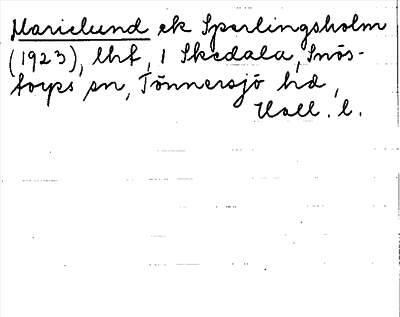 Marielund ek Sperlingsholm
(1923), lht, 1 Skedala, Snös-
torps sn, Tönnersjö hd,
Hall. l.